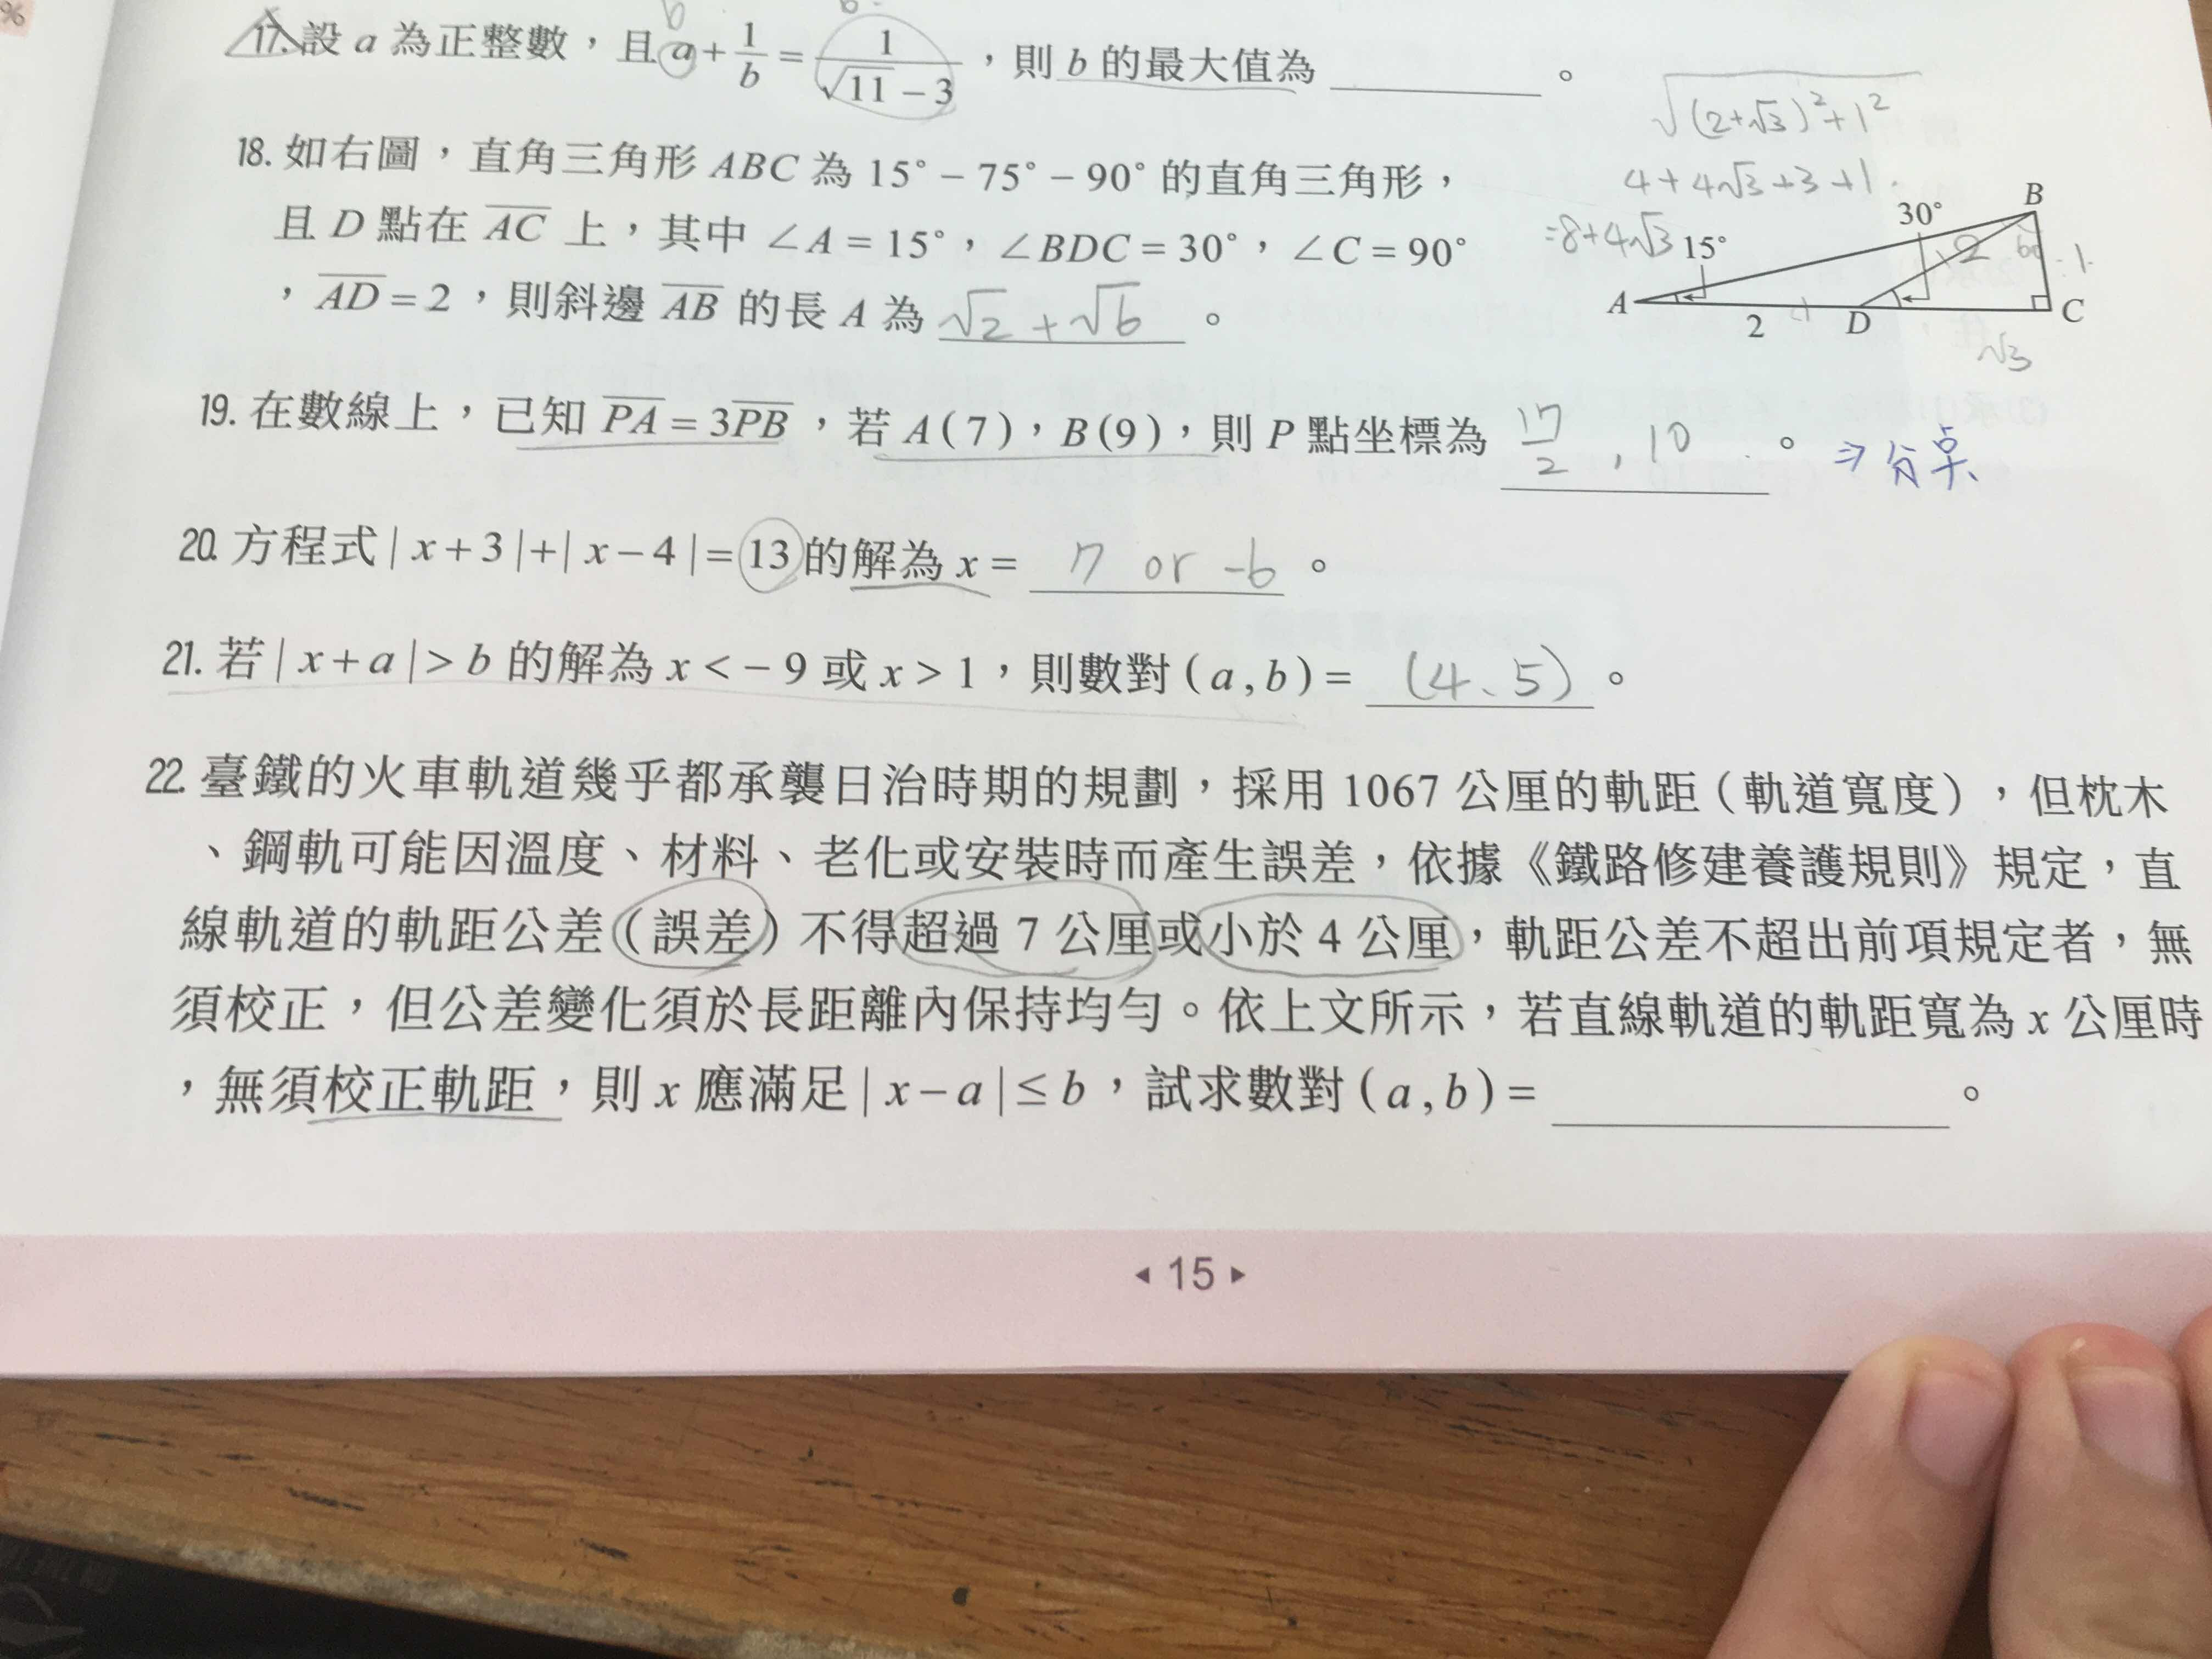 %
17. 設 a 為正整數，且 a + 1/b = 1/(√11 − 3)，則 b 的最大值為 ＿＿＿＿。
b
√((2+√3)²+1²)
4+4√3+3+1
=8+4√3
18. 如右圖，直角三角形 ABC 為 15° − 75° − 90° 的直角三角形，
且 D 點在 AC 上，其中 ∠A = 15°，∠BDC = 30°，∠C = 90°
，AD = 2，則斜邊 AB 的長 A 為 √2 + √6 。
B
30°
15°
2
60
1
A
2
D
C
√3
19. 在數線上，已知 PA = 3PB，若 A(7)，B(9)，則 P 點坐標為 17/2 , 10 。⇒ 分点
20. 方程式 | x + 3 | + | x − 4 | = 13 的解為 x = 7 or -6 。
21. 若 | x + a | > b 的解為 x < − 9 或 x > 1，則數對 (a , b) = (4、5) 。
22. 臺鐵的火車軌道幾乎都承襲日治時期的規劃，採用 1067 公厘的軌距（軌道寬度），但枕木
、鋼軌可能因溫度、材料、老化或安裝時而產生誤差，依據《鐵路修建養護規則》規定，直
線軌道的軌距公差（誤差）不得超過 7 公厘或小於 4 公厘，軌距公差不超出前項規定者，無
須校正，但公差變化須於長距離內保持均勻。依上文所示，若直線軌道的軌距寬為 x 公厘時
，無須校正軌距，則 x 應滿足 | x − a | ≤ b，試求數對 (a , b) = ＿＿＿＿。
◂ 15 ▸